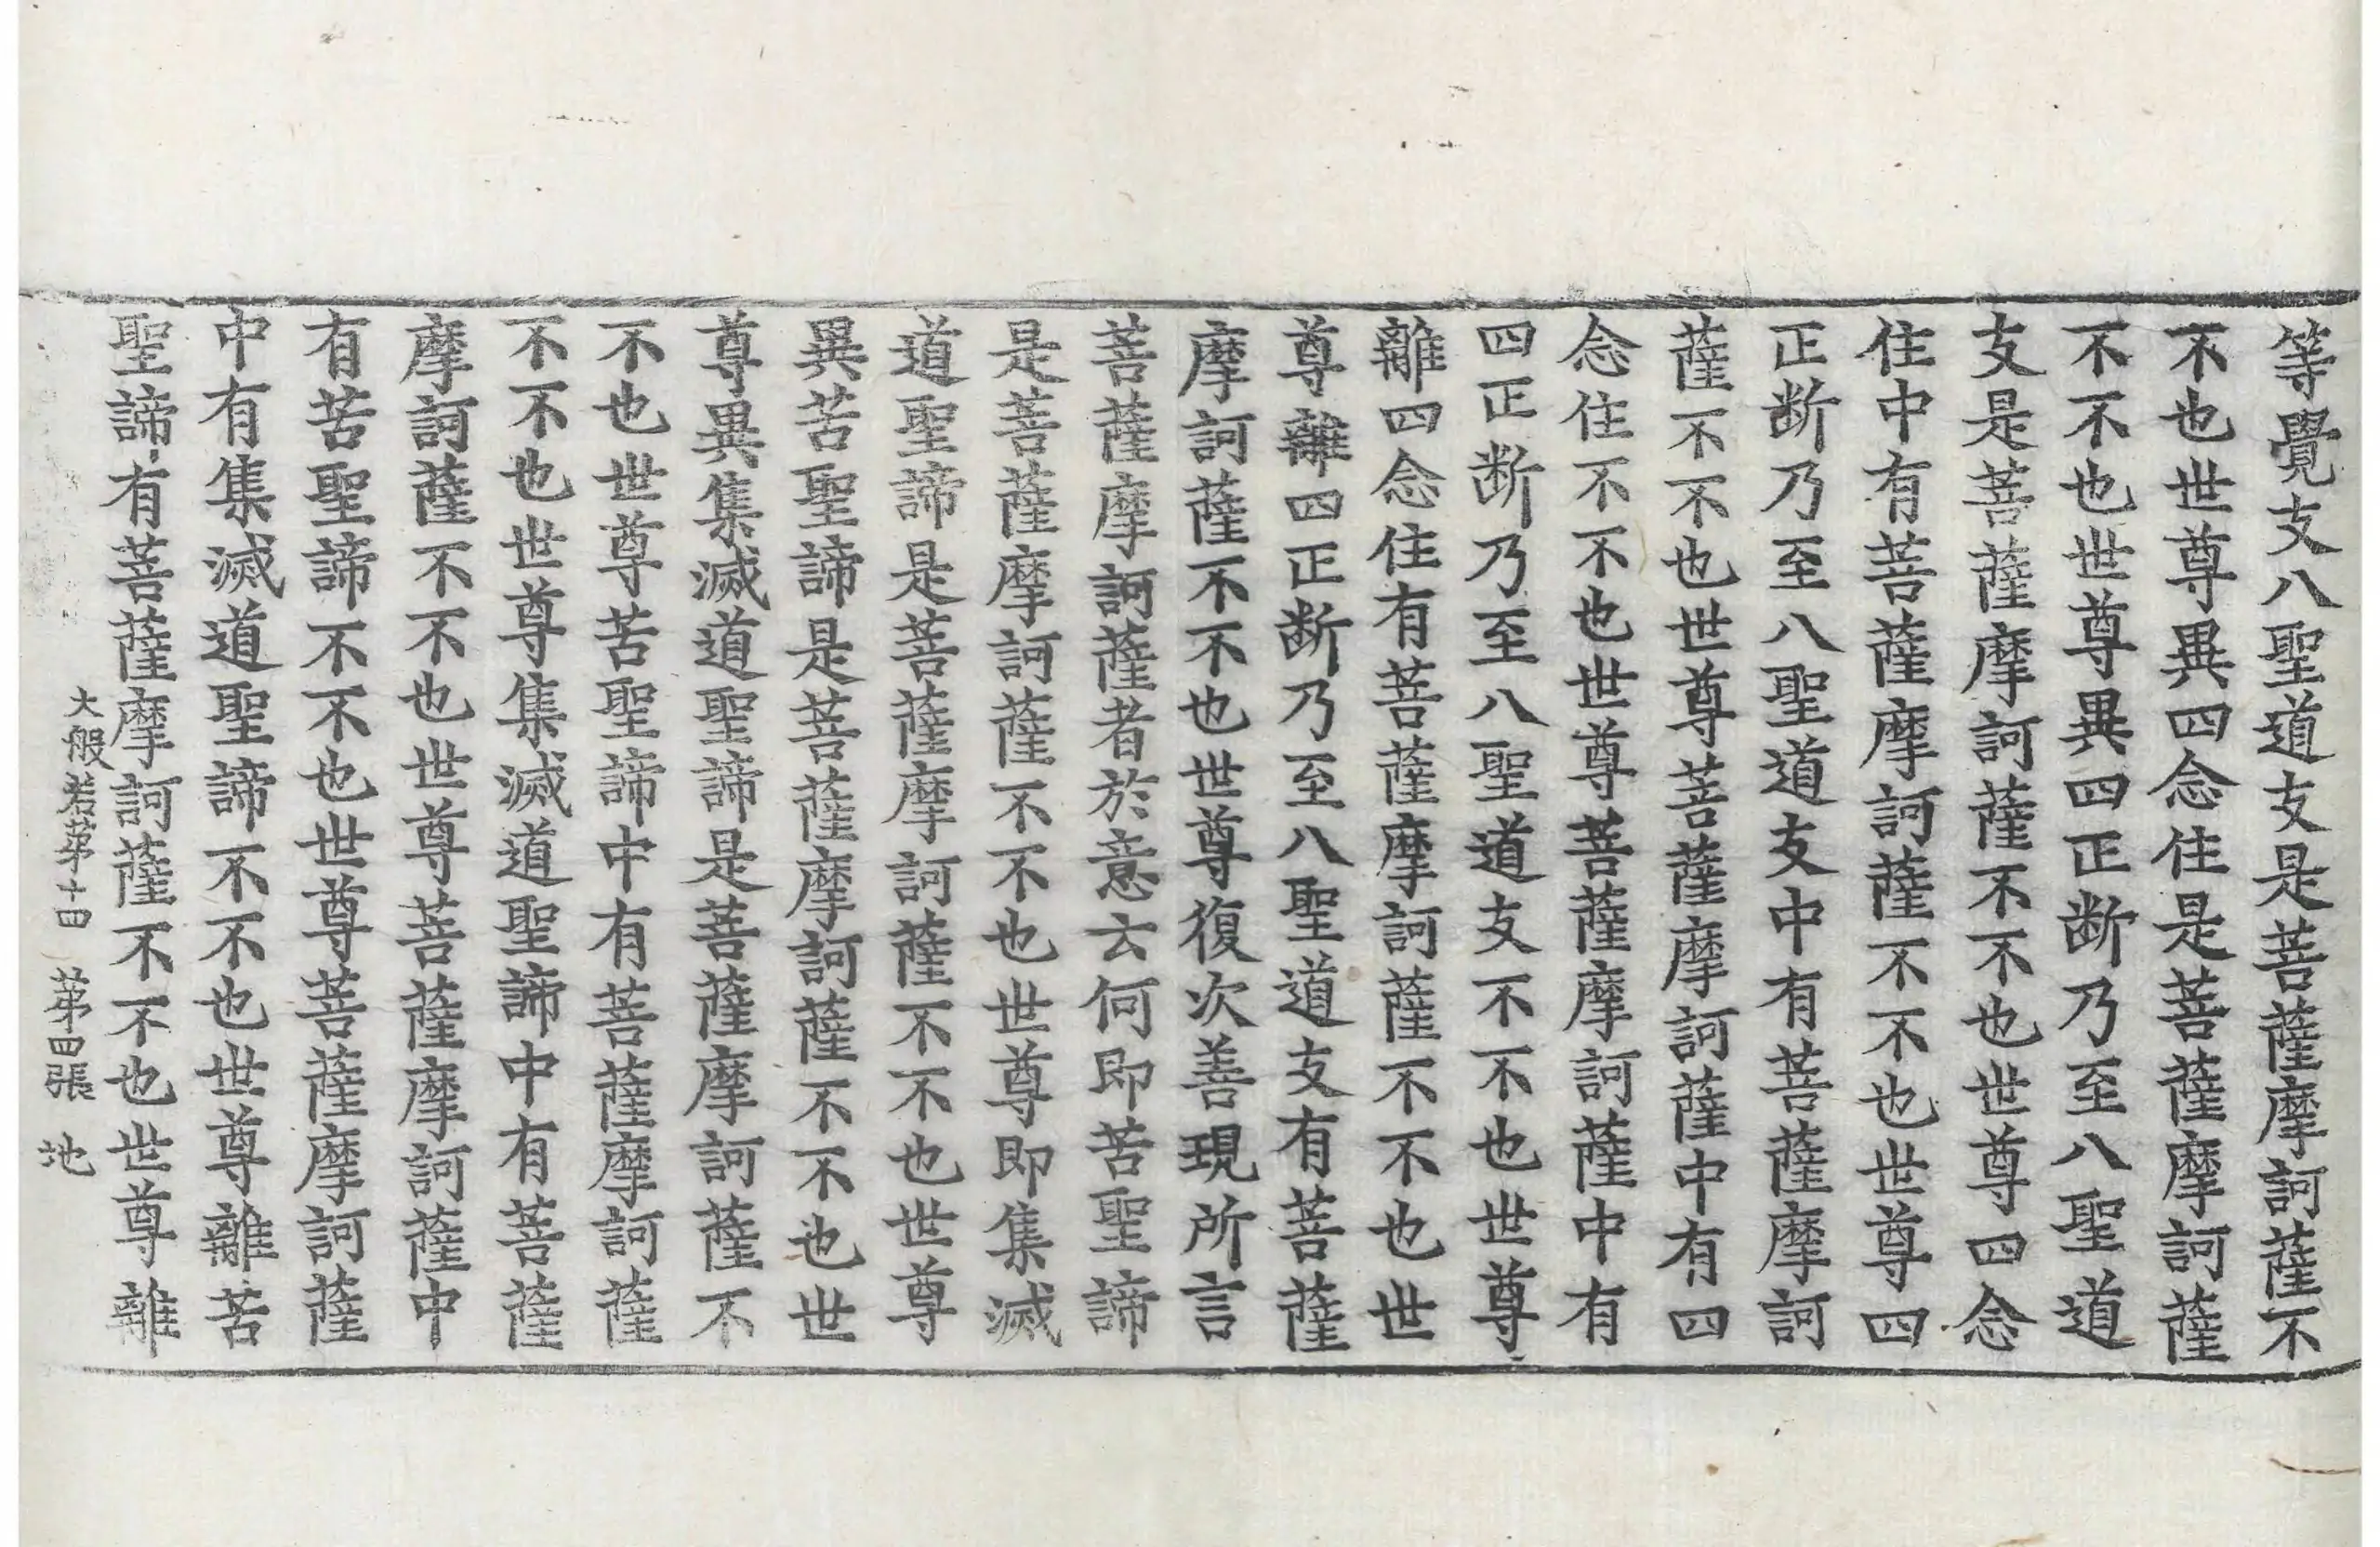 等覺支八聖道支是菩薩摩訶薩不
不也世尊異四念住是菩薩摩訶薩
不不也世尊異四正断乃至八聖道
支是菩薩摩訶薩不不也世尊四念
住中有菩薩摩訶薩不不也世尊四
正断乃至八聖道支中有菩薩摩訶
薩不不也世尊菩薩摩訶薩中有四
念住不不也世尊菩薩摩訶薩中有
四正断乃至八聖道支不不也世尊
離四念住有菩薩摩訶薩不不也世
尊離四正断乃至八聖道支有菩薩
摩訶薩不不也世尊復次善現所言
菩薩摩訶薩者於意云何即苦聖諦
是菩薩摩訶薩不不也世尊即集滅
道聖諦是菩薩摩訶薩不不也世尊
異苦聖諦是菩薩摩訶薩不不也世
尊異集滅道聖諦是菩薩摩訶薩不
不也世尊苦聖諦中有菩薩摩訶薩
不不也世尊集滅道聖諦中有菩薩
摩訶薩不不也世尊菩薩摩訶薩中
有苦聖諦不不也世尊菩薩摩訶薩
中有集滅道聖諦不不也世尊離苦
聖諦有菩薩摩訶薩不不也世尊離
大般若苐十四　苐十四張　地